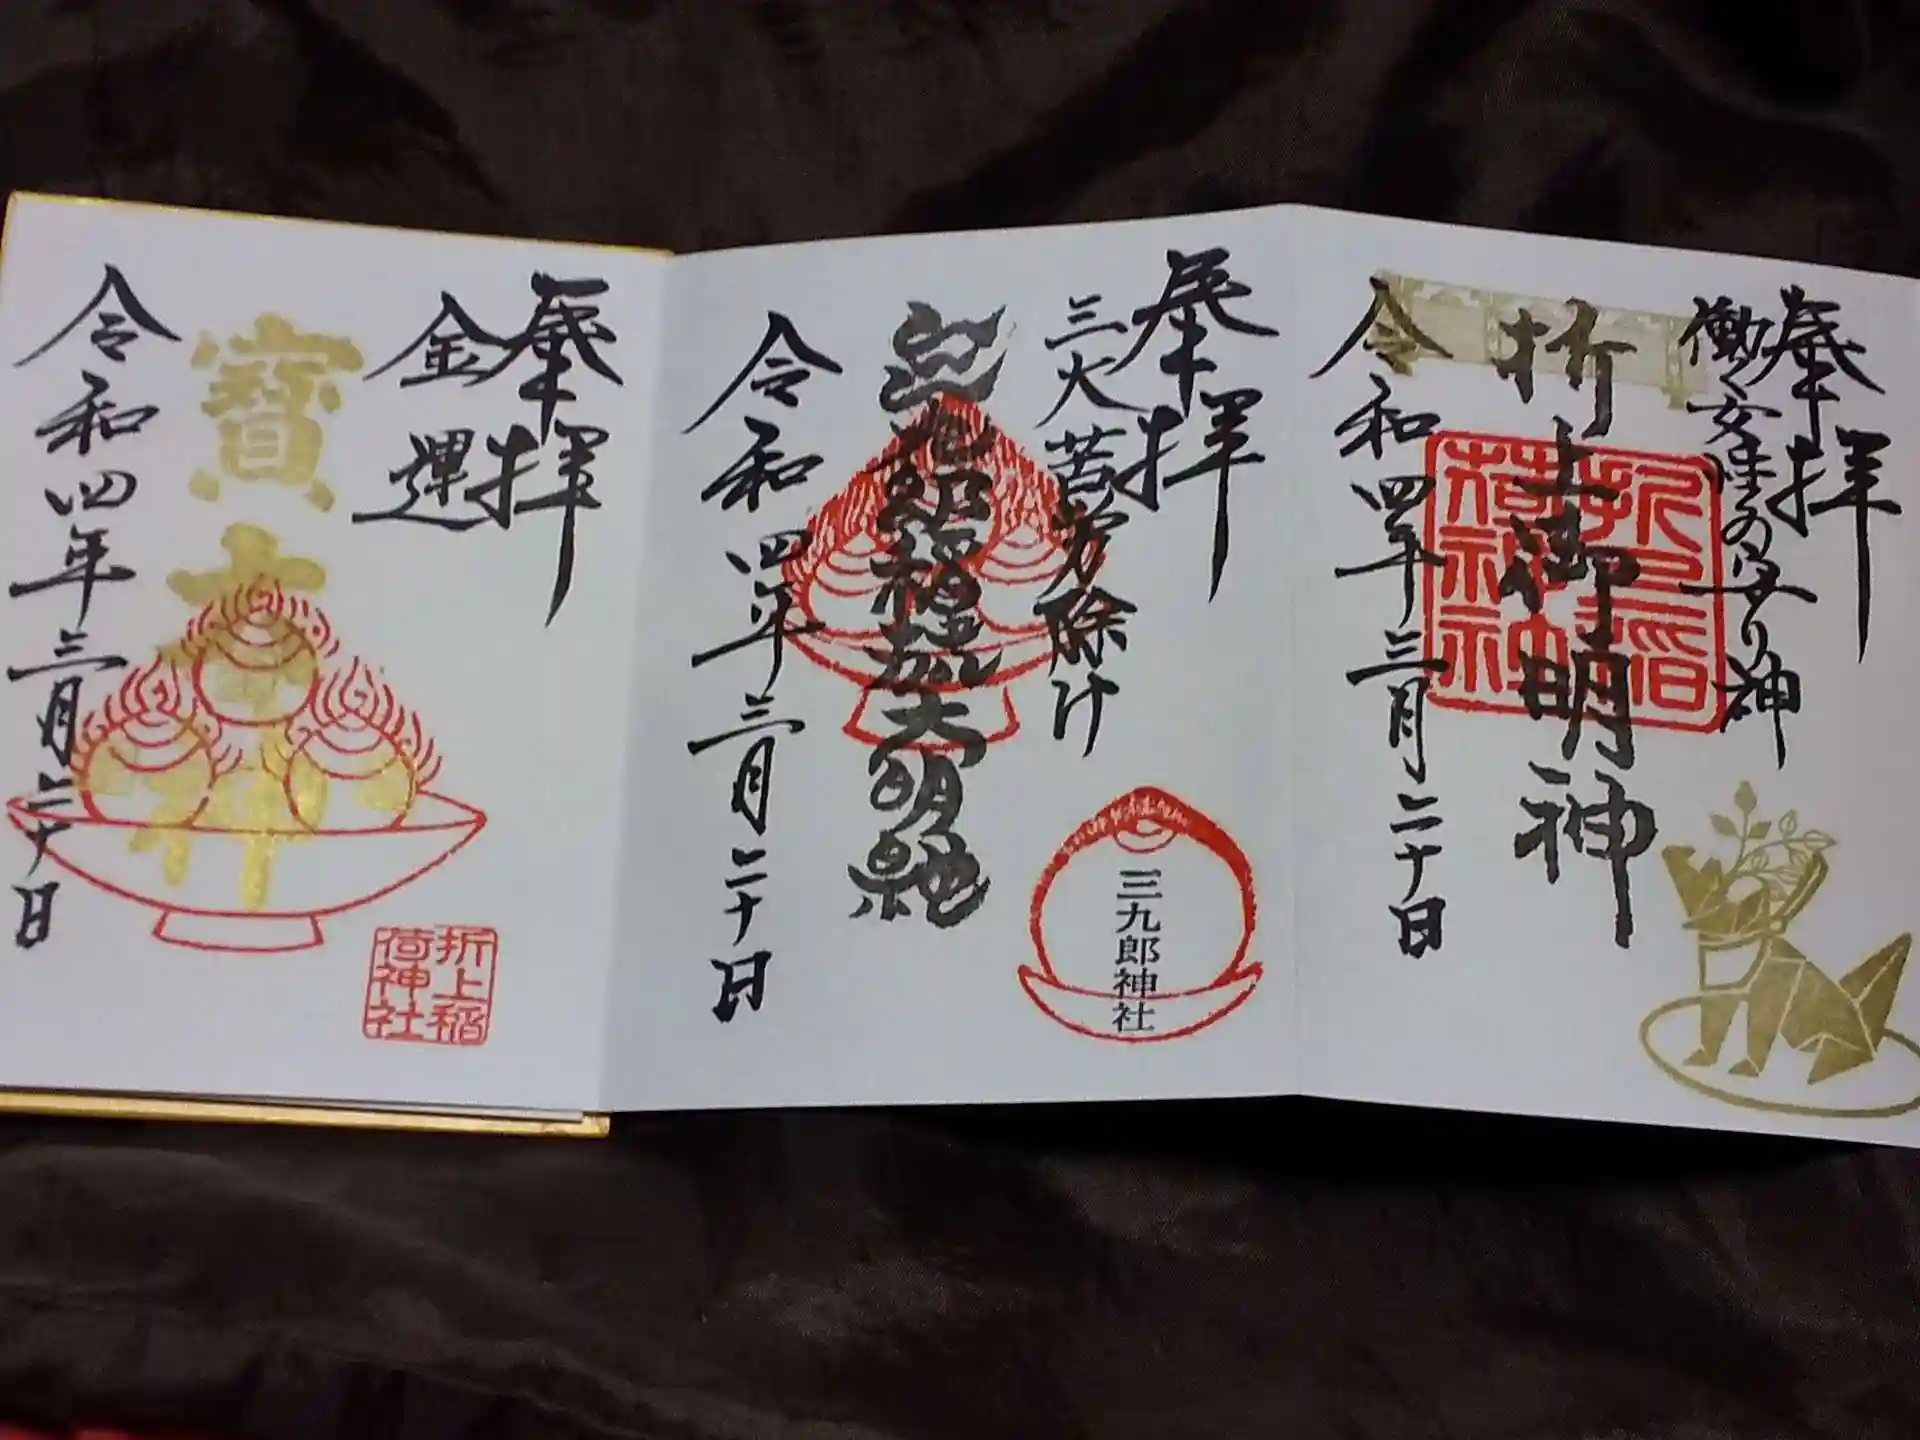 奉拝
働く女性の守り神
折上御明神
折上稲荷神社
令和四年三月二十日
奉拝
三火苦労除け
三九郎稲荷大明神
三九郎神社
令和四年三月二十日
奉拝
金運
寶
神
折上稲荷神社
令和四年三月二十日